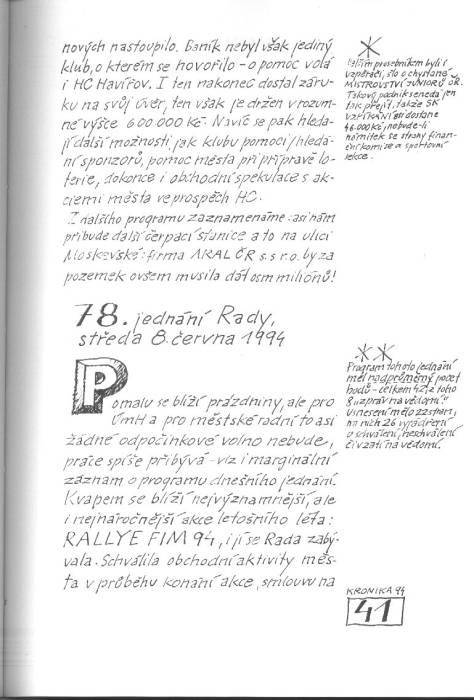 nových nastoupilo. Baník nebyl však jediný
klub, o kterém se hovořilo - o pomoc volá
i HC Havířov. I ten nakonec dostal záru-
ku na svůj úvěr, ten však je držen v rozum-
né výšce 600 000 Kč. Navíc se pak hleda-
jí další možnosti, jak klubu pomoci / hledá-
ní sponzorů, pomoc města při přípravě lo-
terie, dokonce i obchodní spekulace s ak-
ciemi města ve prospěch HC.
Z dalšího programu zaznamenáme: asi nám
přibude další čerpací stanice a to na ulici
Moskevské: firma ARAL ČR s.s r.o. by za
pozemek ovšem musila dát osm miliónů!
78. jednání Rady,
středa 8. června 1994
Pomalu se blíží prázdniny, ale pro
ÚmH a pro městské radní to asi
žádné odpočinkové volno nebude,
práce spíše přibývá - viz i marginální
záznam o programu dnešního jednání.
Kvapem se blíží nejvýznamnější, ale
i nejnáročnější akce letošního léta:
RALLYE FIM 94, i jí se Rada zabý-
vala. Schválila obchodní aktivity měs-
ta v průběhu konání akce, smlouvu na
*
Dalším prosebníkem byli i
vzpěrači, šlo o chystané
MISTROVSTVÍ JUNIORŮ ČR.
Takový podnik se nedá jen
tak přejít, takže SK
VZPÍRÁNÍ asi dostane
46.000 Kč, nebude-li
námitek se strany finan-
ční komise a sportovní
sekce.
**
Program tohoto jednání
měl nadprůměrný počet
bodů - celkem 42, z toho
8 ů zpráv na vědomí.
Usnesení mělo 22 stran,
na nich 26 vyjádření
o schválení, neschválení
či vzatí na vědomí.
KRONIKA 94
41